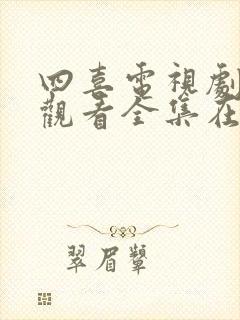 四喜電視劇
觀看全集在
翠眉顰